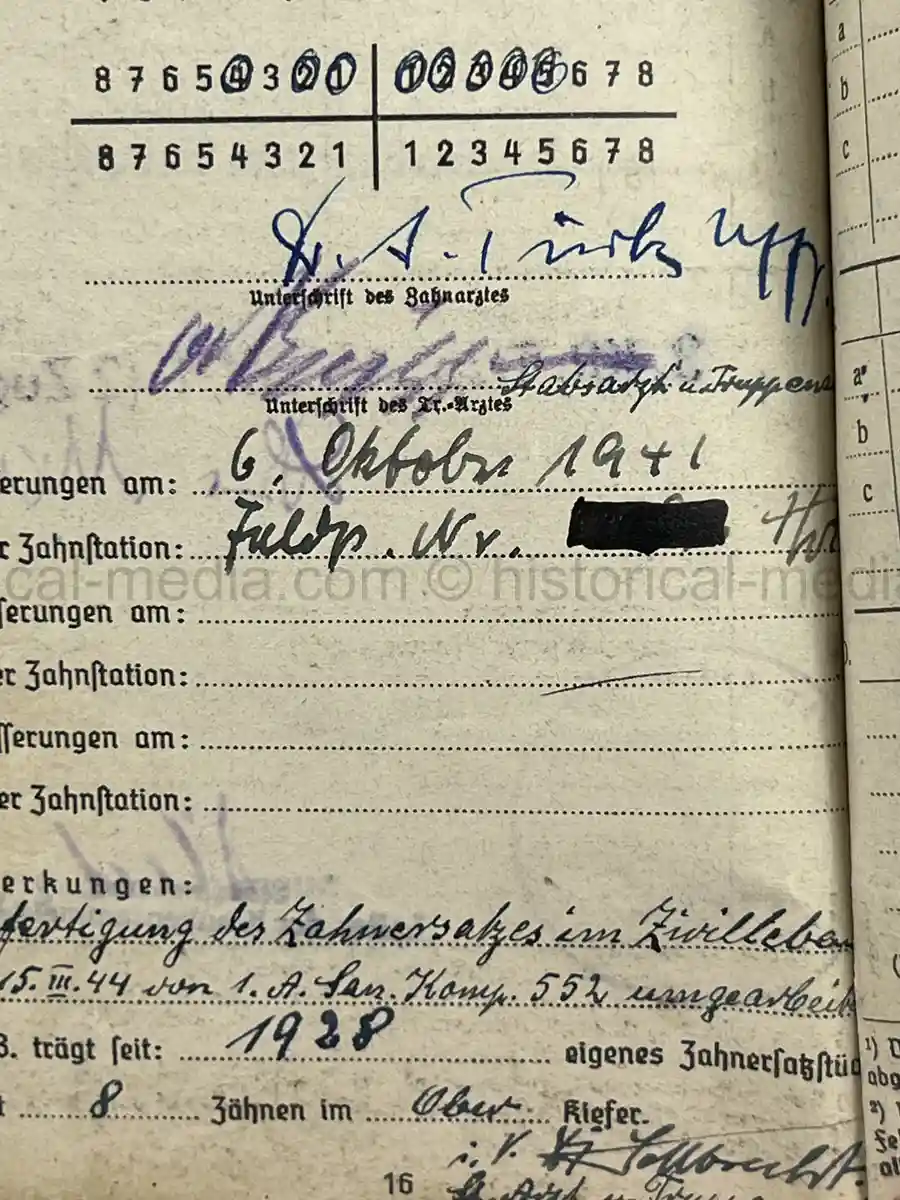 8 7 6 5 4 3 2 1 1 2 3 4 5 6 7 8
8 7 6 5 4 3 2 1 1 2 3 4 5 6 7 8
Dr. A.
Unterschrift des Zahnarztes
Stabsarzt u. Truppena
Unterschrift des Tr.-Arztes
erungen am: 6. Oktober 1941
r Zahnstation: Feldp. Nr.
cal-media.com © historical-media
serungen am:
er Zahnstation:
sserungen am:
er Zahnstation:
erkungen:
fertigung des Zahnersatzes im Zivilleben
15.III.44 von 1. A. San. Komp. 552 umgearbeit
3. trägt seit: 1928 eigenes Zahnersatzstüc
t 8 Zähnen im Ober Kiefer.
i. V.
16
a
b
c
a
b
c
1)
abg
2)